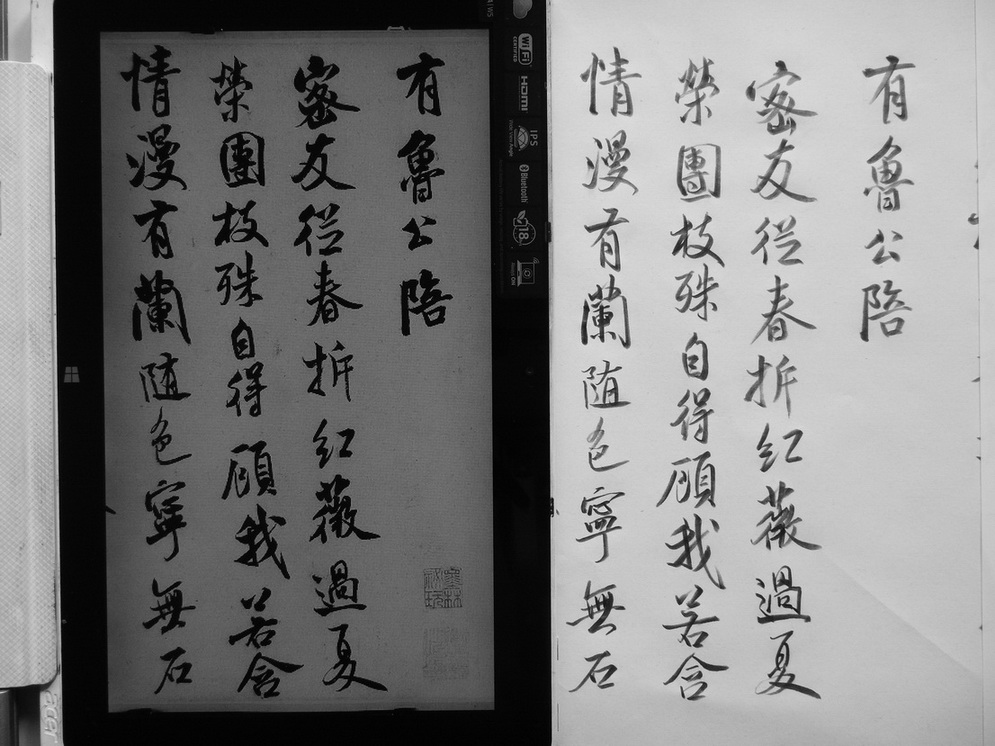 有魯公陪
密友從春拆紅薇過夏
榮團枝殊自得顧我若含
情漫有蘭隨色寧無石
WiFi
CERTIFIED
HDMI
IPS
Bluetooth
18
acer
有魯公陪
密友從春拆紅薇過夏
榮團枝殊自得顧我若含
情漫有蘭隨色寧無石